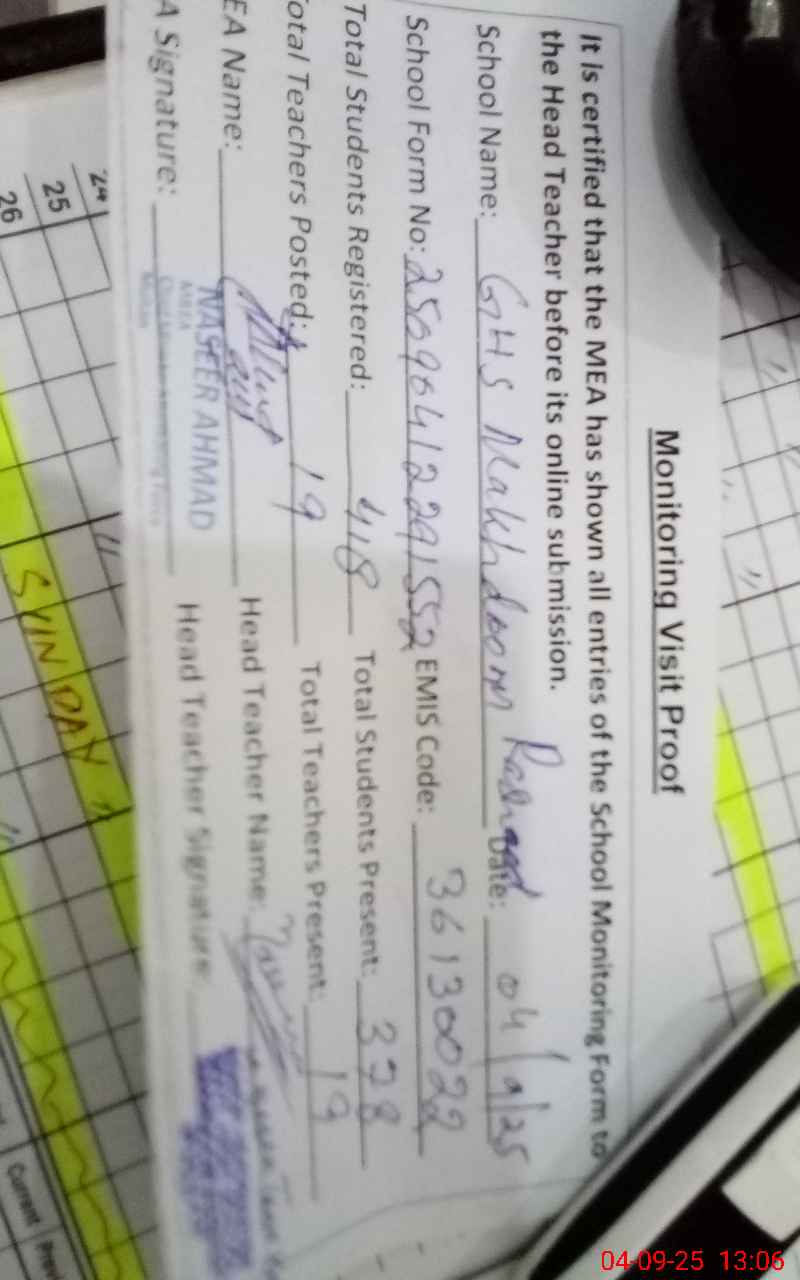 Monitoring Visit Proof
It is certified that the MEA has shown all entries of the School Monitoring Form to
the Head Teacher before its online submission.
School Name: GHS Makhdoom Rasheed Date: 04/9/25
School Form No: 25090412291552 EMIS Code: 36130022
Total Students Registered: 418 Total Students Present: 398
otal Teachers Posted: 19 Total Teachers Present: 19
EA Name: Head Teacher Name:
A Signature: NASEER AHMAD Head Teacher Signature:
MEA
Multan
24
25
26
SUNDAY
Current
04-09-25 13:06